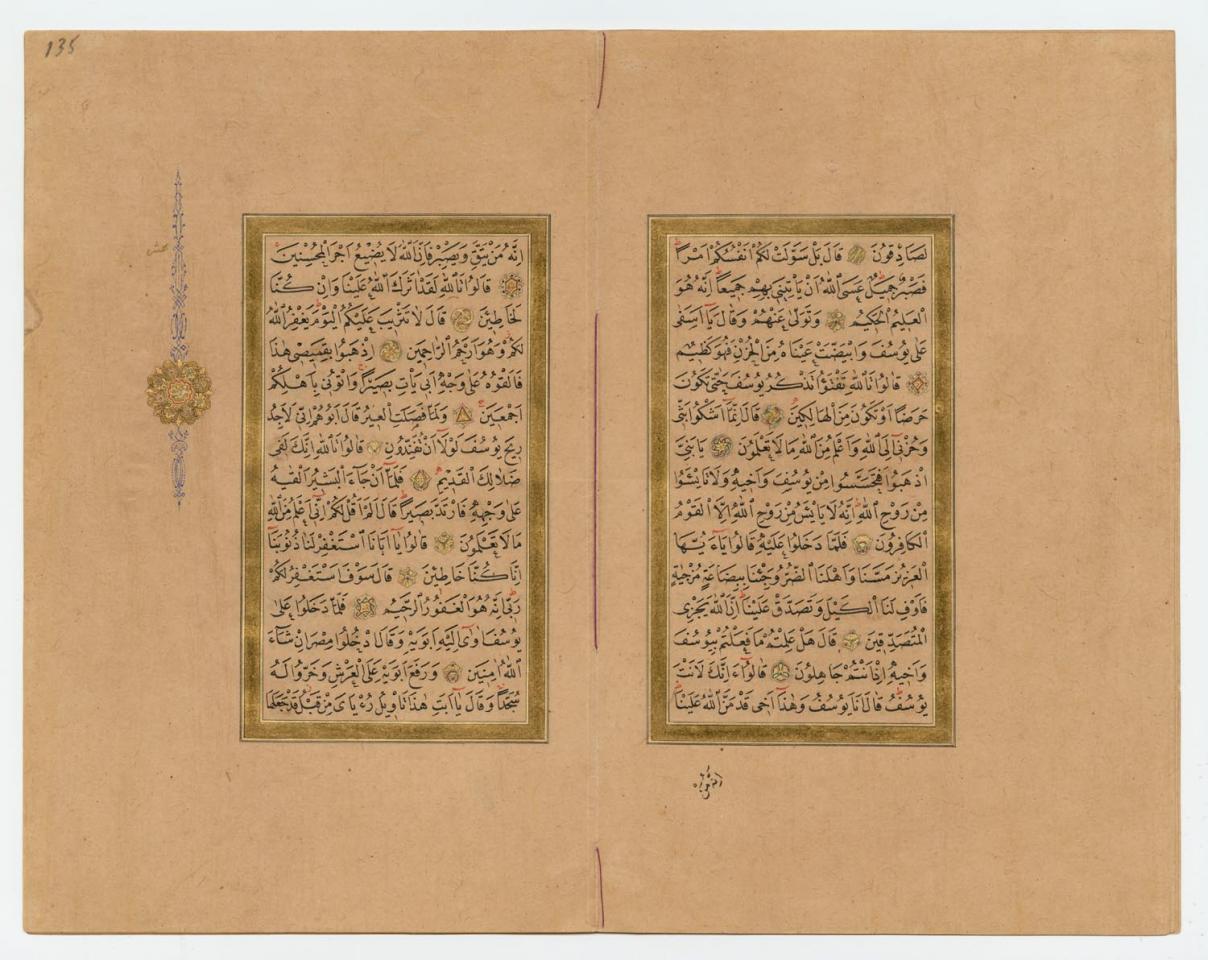 لَصَادِقُونَ قَالَ بَلْ سَوَّلَتْ لَكُمْ اَنْفُسُكُمْ اَمْرًا
فَصَبْرٌ جَمِيلٌ عَسَى اللّٰهُ اَنْ يَأْتِيَنِي بِهِمْ جَمِيعًا اِنَّهُ هُوَ
الْعَلِيمُ الْحَكِيمُ وَتَوَلّٰى عَنْهُمْ وَقَالَ يَآ اَسَفٰى
عَلٰى يُوسُفَ وَابْيَضَّتْ عَيْنَاهُ مِنَ الْحُزْنِ فَهُوَ كَظِيمٌ
قَالُوا تَاللّٰهِ تَفْتَؤُا تَذْكُرُ يُوسُفَ حَتّٰى تَكُونَ
حَرَضًا اَوْ تَكُونَ مِنَ الْهَالِكِينَ قَالَ اِنَّمَا اَشْكُوا بَثِّي
وَحُزْنِي اِلَى اللّٰهِ وَاَعْلَمُ مِنَ اللّٰهِ مَا لَا تَعْلَمُونَ يَا بَنِيَّ
اذْهَبُوا فَتَحَسَّسُوا مِنْ يُوسُفَ وَاَخِيهِ وَلَا تَايْئَسُوا
مِنْ رَوْحِ اللّٰهِ اِنَّهُ لَا يَايْئَسُ مِنْ رَوْحِ اللّٰهِ اِلَّا الْقَوْمُ
الْكَافِرُونَ فَلَمَّا دَخَلُوا عَلَيْهِ قَالُوا يَآ اَيُّهَا
الْعَزِيزُ مَسَّنَا وَاَهْلَنَا الضُّرُّ وَجِئْنَا بِبِضَاعَةٍ مُزْجٰيةٍ
فَاَوْفِ لَنَا الْكَيْلَ وَتَصَدَّقْ عَلَيْنَا اِنَّ اللّٰهَ يَجْزِي
الْمُتَصَدِّقِينَ قَالَ هَلْ عَلِمْتُمْ مَا فَعَلْتُمْ بِيُوسُفَ
وَاَخِيهِ اِذْ اَنْتُمْ جَاهِلُونَ قَالُوا ءَاِنَّكَ لَاَنْتَ
يُوسُفُ قَالَ اَنَا يُوسُفُ وَهٰذَا اَخِي قَدْ مَنَّ اللّٰهُ عَلَيْنَا
اِنَّهُ مَنْ
135
اِنَّهُ مَنْ يَتَّقِ وَيَصْبِرْ فَاِنَّ اللّٰهَ لَا يُضِيعُ اَجْرَ الْمُحْسِنِينَ
قَالُوا تَاللّٰهِ لَقَدْ اٰثَرَكَ اللّٰهُ عَلَيْنَا وَاِنْ كُنَّا
لَخَاطِئِينَ قَالَ لَا تَثْرِيبَ عَلَيْكُمُ الْيَوْمَ يَغْفِرُ اللّٰهُ
لَكُمْ وَهُوَ اَرْحَمُ الرَّاحِمِينَ اِذْهَبُوا بِقَمِيصِي هٰذَا
فَاَلْقُوهُ عَلٰى وَجْهِ اَبِي يَأْتِ بَصِيرًا وَأْتُونِي بِاَهْلِكُمْ
اَجْمَعِينَ وَلَمَّا فَصَلَتِ الْعِيرُ قَالَ اَبُوهُمْ اِنِّي لَاَجِدُ
رِيحَ يُوسُفَ لَوْلَا اَنْ تُفَنِّدُونِ قَالُوا تَاللّٰهِ اِنَّكَ لَفِي
ضَلَالِكَ الْقَدِيمِ فَلَمَّا اَنْ جَآءَ الْبَشِيرُ اَلْقٰيهُ
عَلٰى وَجْهِهِ فَارْتَدَّ بَصِيرًا قَالَ اَلَمْ اَقُلْ لَكُمْ اِنِّي اَعْلَمُ مِنَ اللّٰهِ
مَا لَا تَعْلَمُونَ قَالُوا يَآ اَبَانَا اسْتَغْفِرْ لَنَا ذُنُوبَنَا
اِنَّا كُنَّا خَاطِئِينَ قَالَ سَوْفَ اَسْتَغْفِرُ لَكُمْ
رَبِّي اِنَّهُ هُوَ الْغَفُورُ الرَّحِيمُ فَلَمَّا دَخَلُوا عَلٰى
يُوسُفَ اٰوٰى اِلَيْهِ اَبَوَيْهِ وَقَالَ ادْخُلُوا مِصْرَ اِنْ شَآءَ
اللّٰهُ اٰمِنِينَ وَرَفَعَ اَبَوَيْهِ عَلَى الْعَرْشِ وَخَرُّوا لَهُ
سُجَّدًا وَقَالَ يَآ اَبَتِ هٰذَا تَأْوِيلُ رُءْيَايَ مِنْ قَبْلُ قَدْ جَعَلَهَا